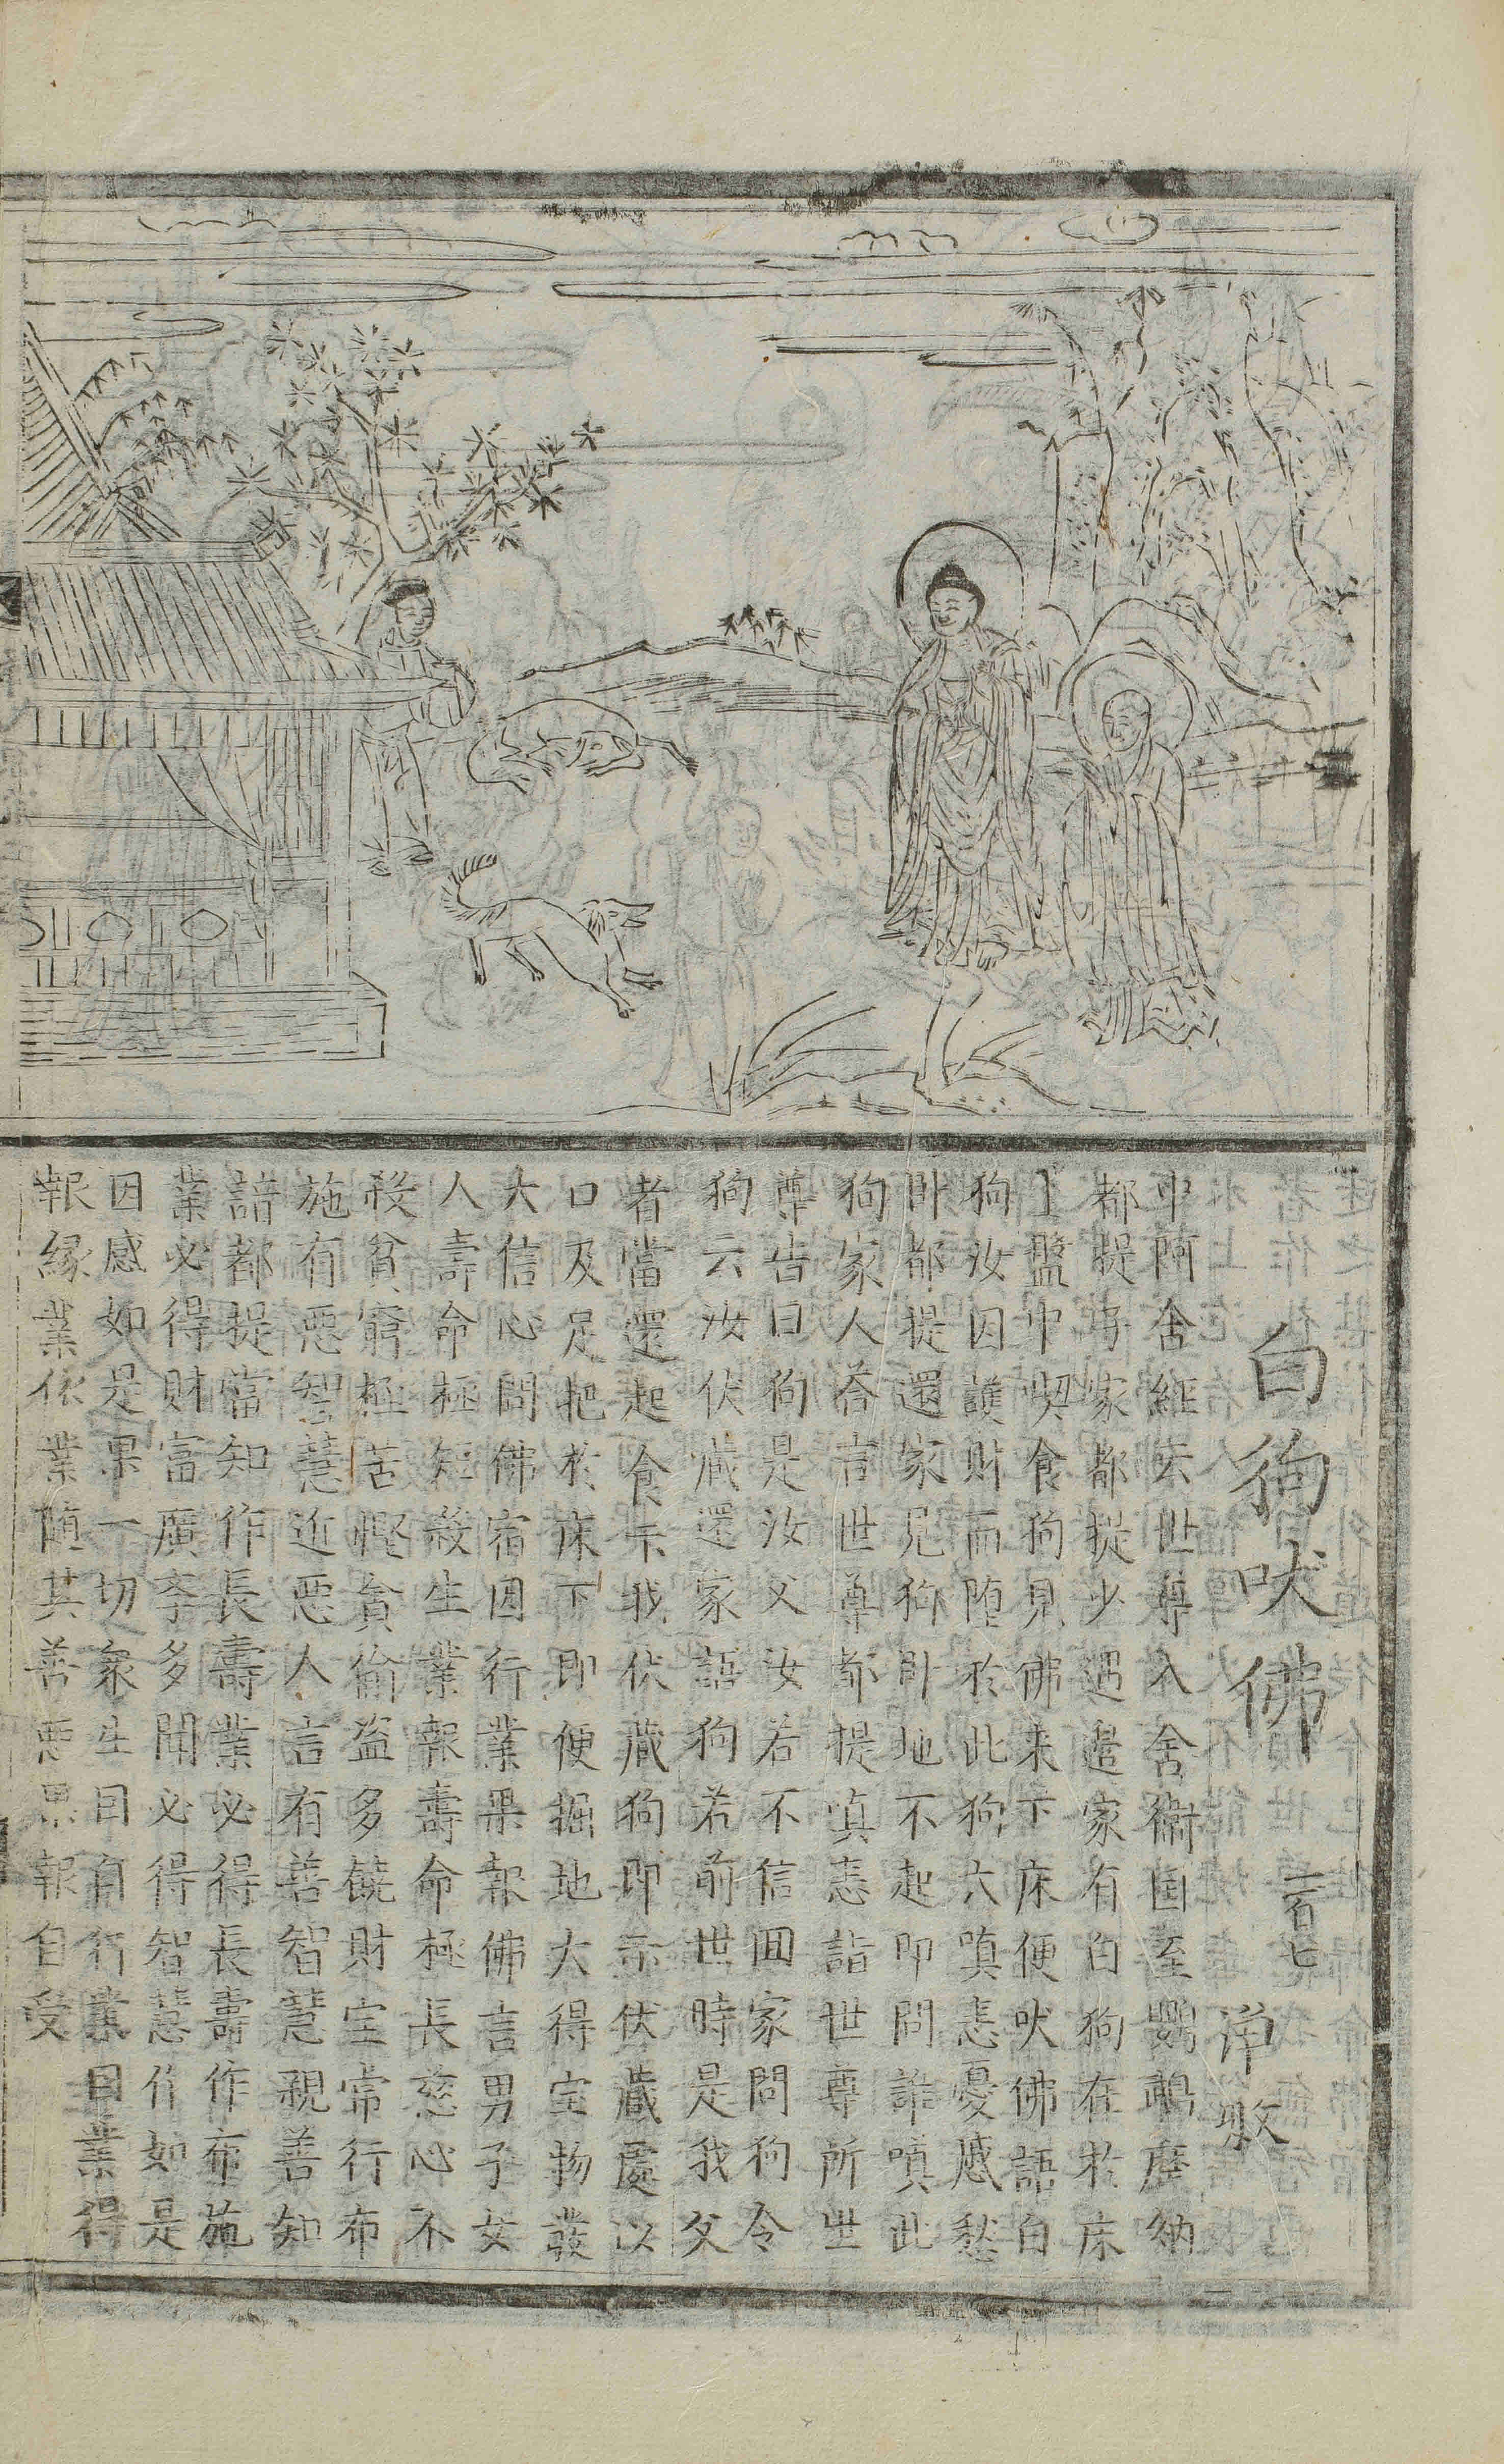 白狗吠佛 一百七 洋啟
中阿含經云世尊入舍衛国至鸚鵡摩納
都提子家都提少遇邉家有白狗在於床
上盤中喫食狗見佛来下床便吠佛語白
狗汝因護財而墮於此狗大嗔恚憂慼愁
卧都提還家見狗卧地不起即問誰嗔此
狗家人荅言世尊都提嗔恚詣世尊所世
尊告曰狗是汝父汝若不信回家問狗令
狗云汝伏藏還家語狗若前世時是我父
者當還起食示我伏藏狗即示伏藏處以
口及足把於床下即便掘地大得宝物發
大信心問佛宿因行業果報佛言男子女
人壽命極短殺生業報壽命極長慈心不
殺貧窮極苦慳貪偷盗多饒財宝常行布
施有惡智慧近惡人言有善智慧親善知
諳都提當知作長壽業必得長壽作布施
業必得財富廣李多聞必得智慧作如是
因感如是果一切衆生因自行業因業得
報縁業依業随其善惡果報自受